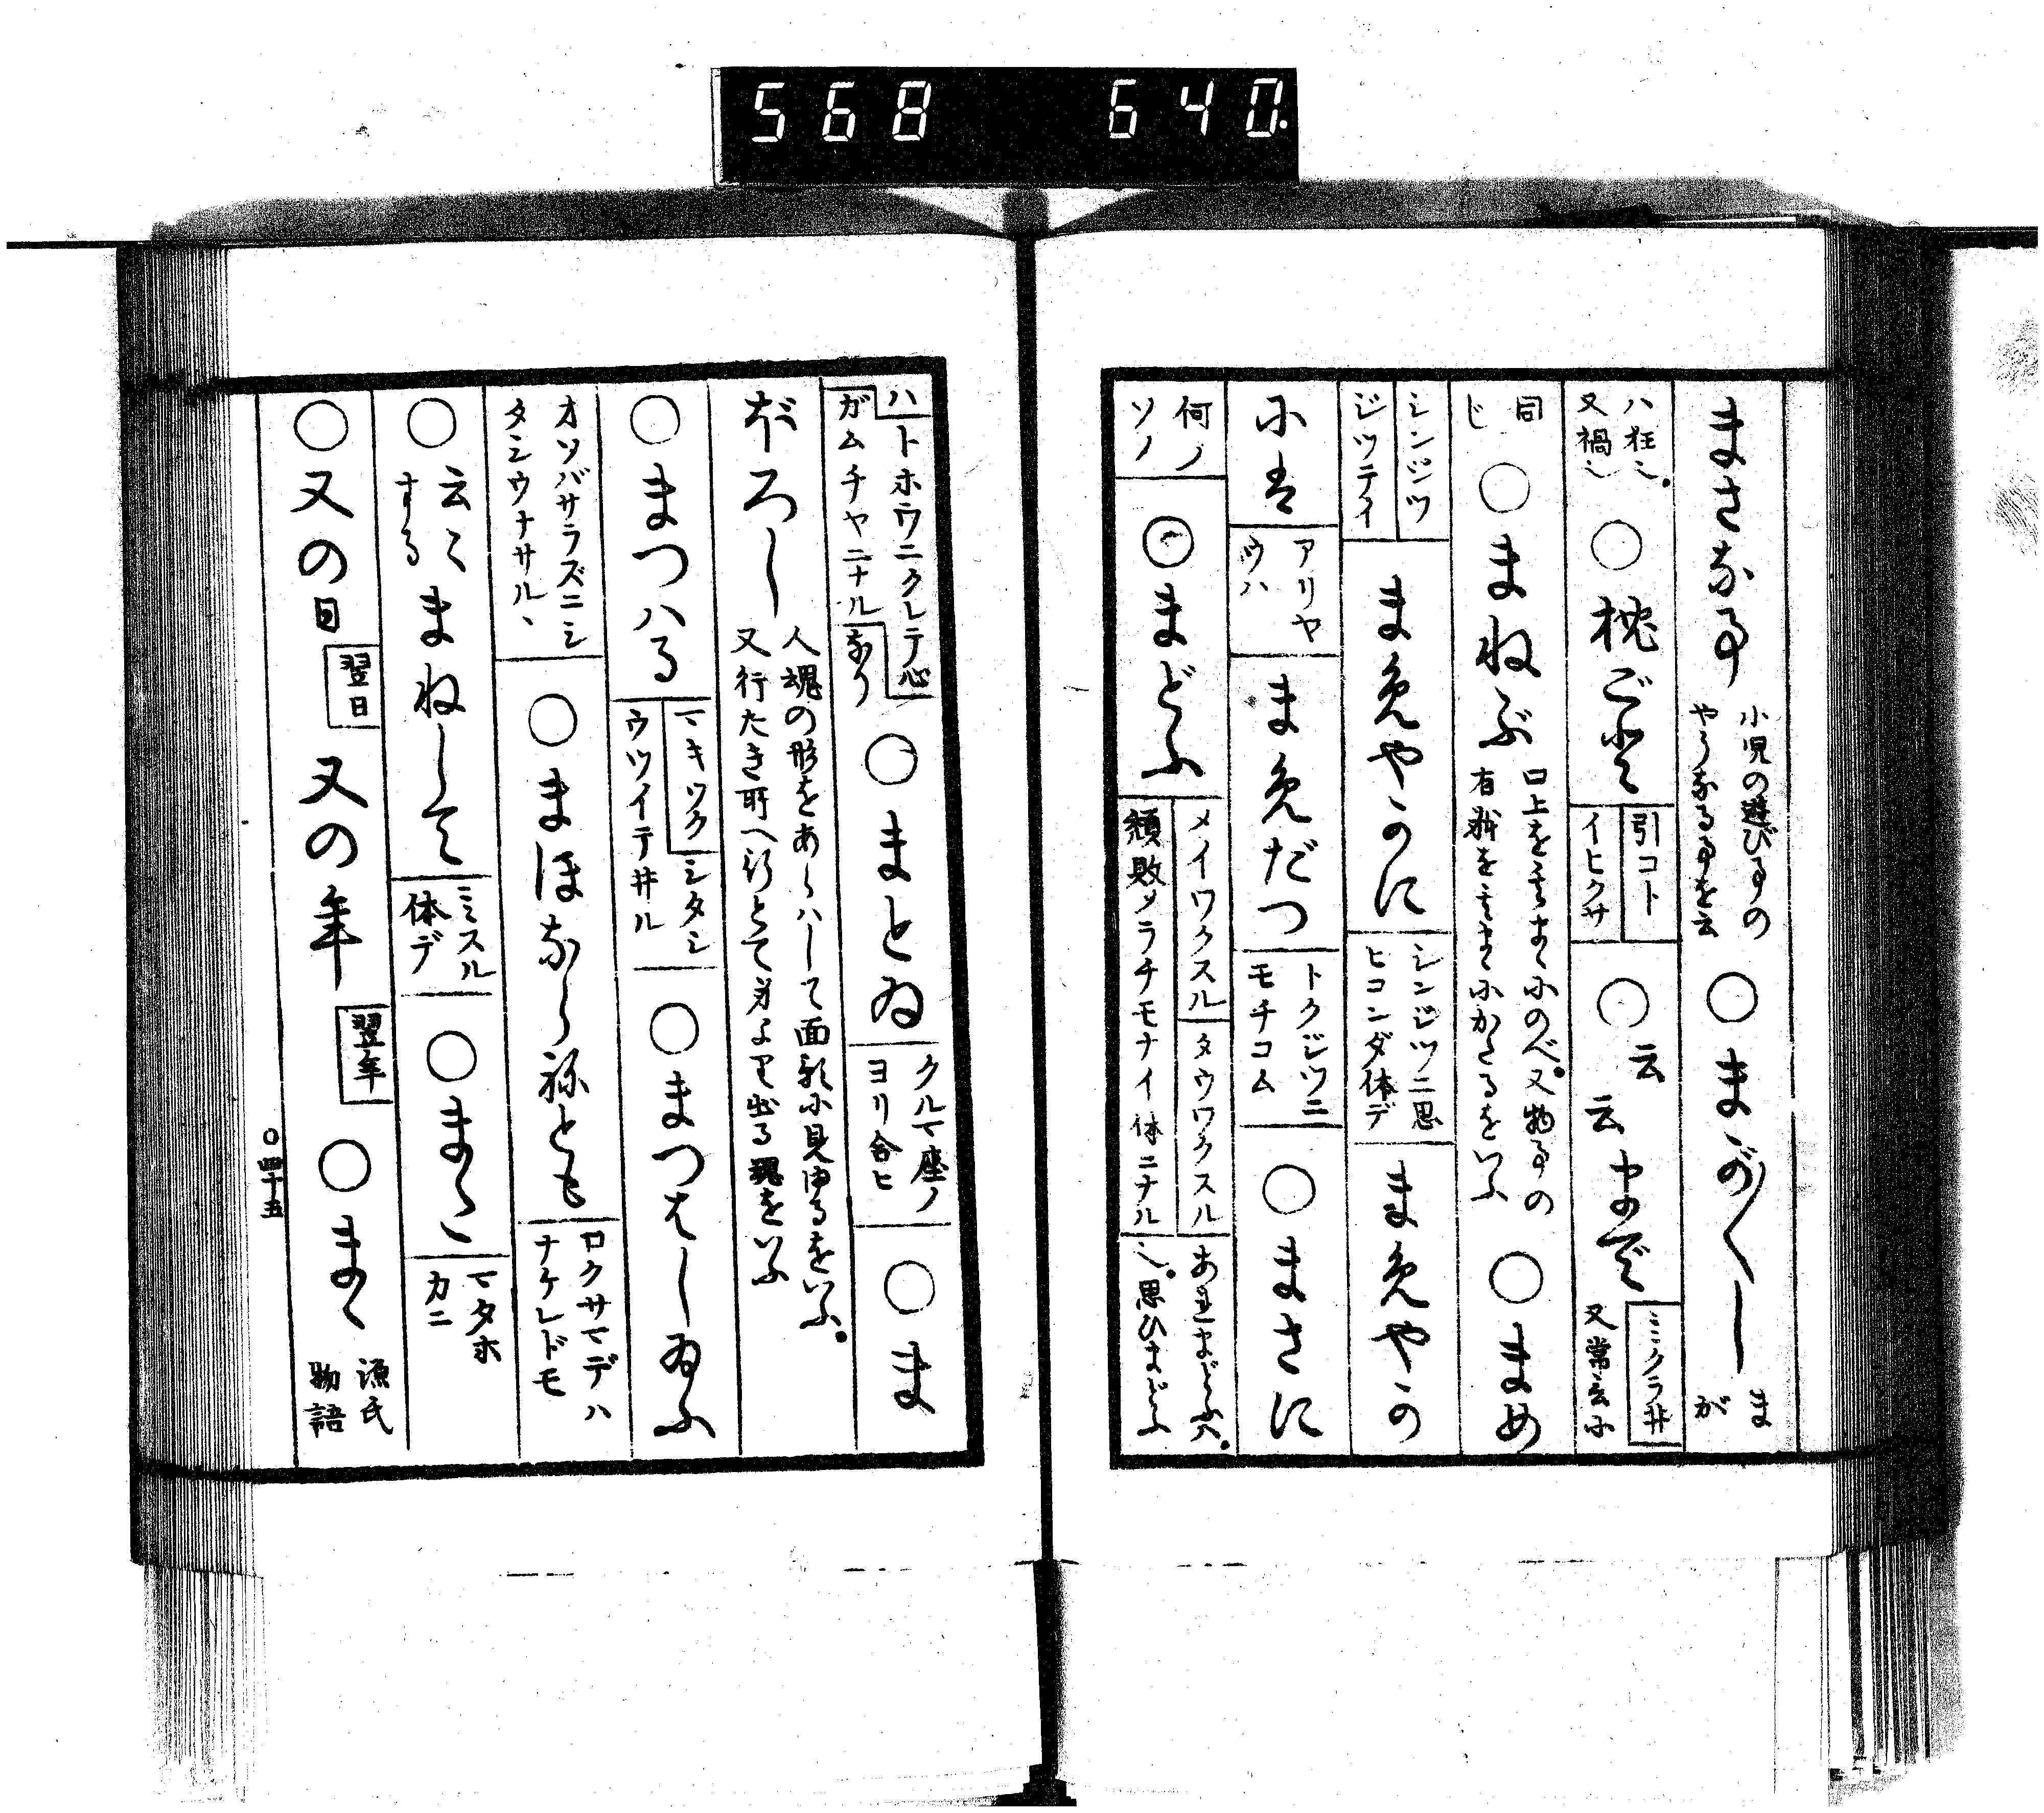 568 640.
まさな事 小児の遊び事の
やうなる事を云 ○まが〱し まが
ハ枉也。
又禍也 ○枕ごと 引コト
イヒクサ ○云云まで ミクラ井
又常言に
同じ ○まねぶ 口上を其まゝにのべ。又物事の
有状を其まゝにかたるをいふ ○まめ
シンジツ
ジツテイ まめやかに シンジツニ思
ヒコンダ体デ まめやか
には アリヤ
ウハ まめだつ トクジツニ
モチコム ○まさに
何ノ
ソノ ○まどふ メイワクスル タウワクスル
頽敗ソラチモナイ体ニナル
也。思ひまどふ
ハトホウニクレテ心
ガムチヤニナルなり ○まとゐ クルマ座ノ
ヨリ合ヒ ○ま
ぼろし 人魂の形をあらハして面影に見ゆるをいふ。
又行たき所へ行とて身より出る魂をいふ
○まつハる マキツク シタシ
ウツイテ井ル ○まつはしゐふ
オソバサラズニシ
タシウナサル、 ○まほならねども ロクサマデハ
ナケレドモ
○云々まねして
する ミスル
体デ ○また〻 マタホ
カニ
○又の日 翌日 又の年 翌年 ○まく 源氏
物語
○四十五